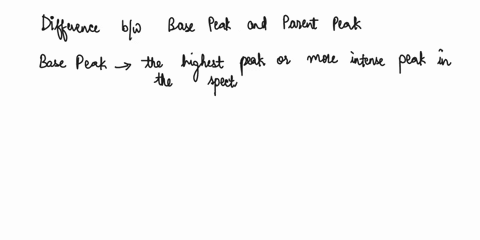 Difference b/w Base Peak and Parent Peak
Base Peak → the highest peak or more intense peak in
the spect